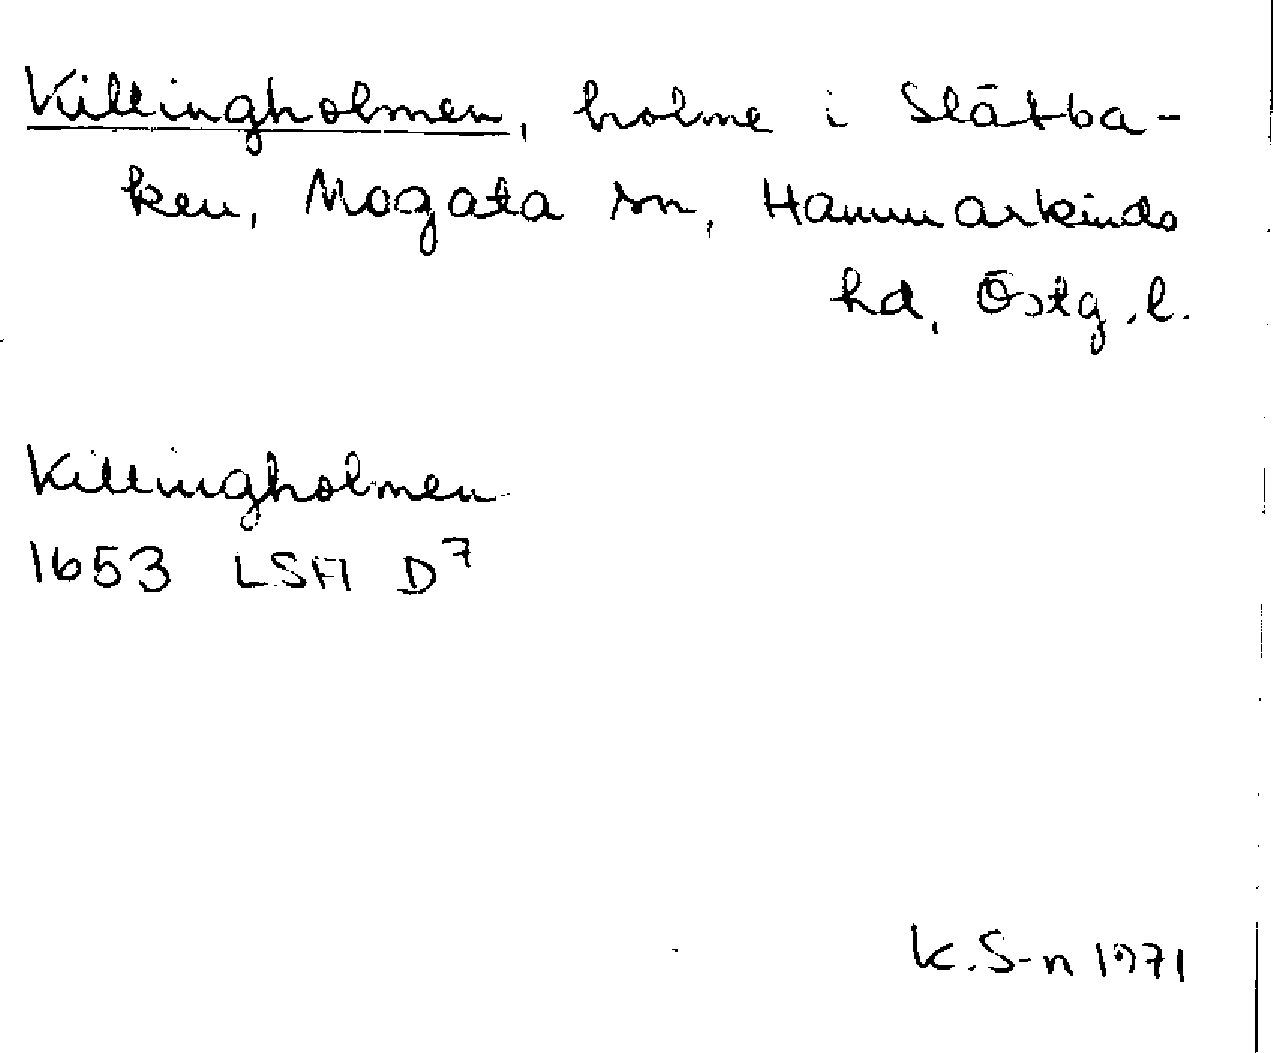 Killingholmen, holme i Slätba-
ken, Mogata sn, Hammarkinds
hd, Östg.l.
Killingholmen
1653 LSA D7
K.S-n 1971